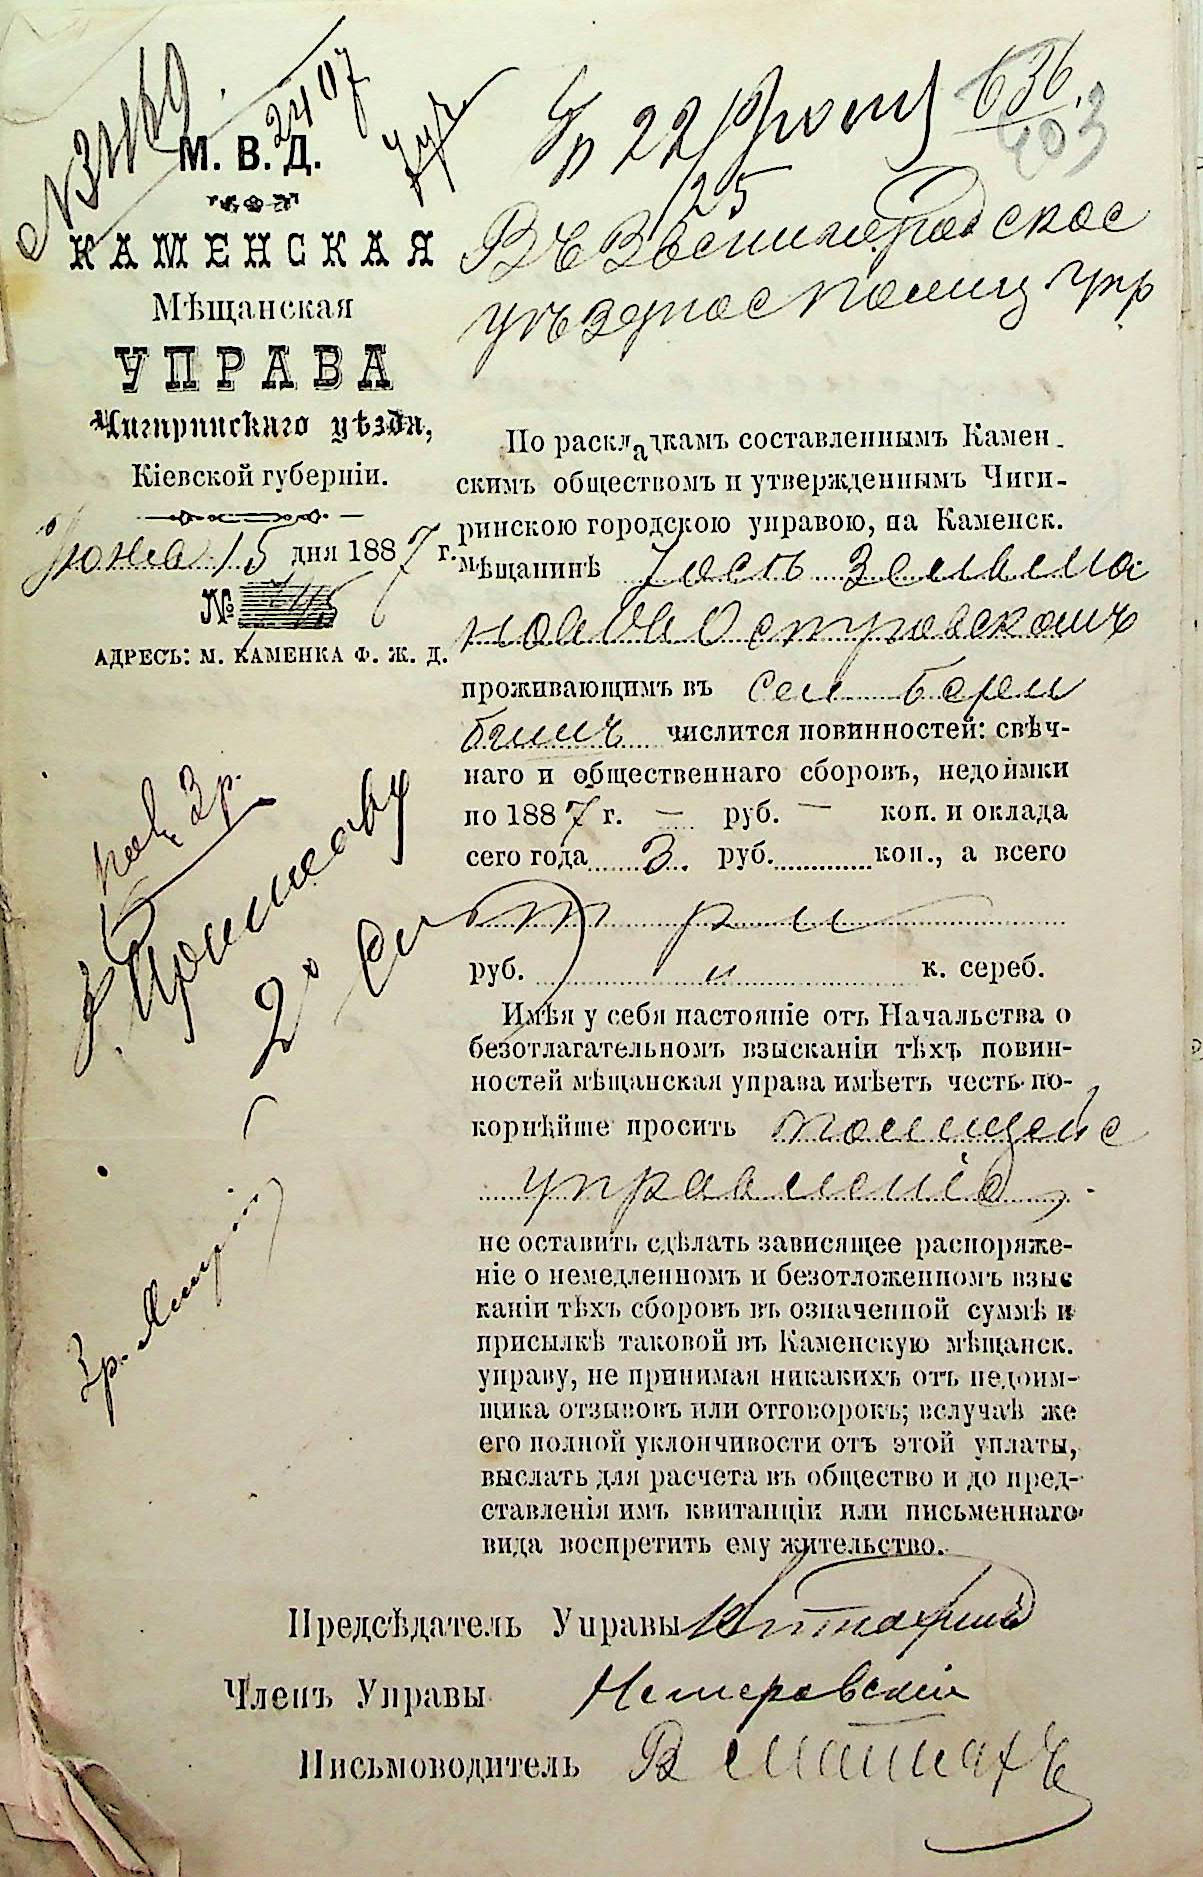 2407
636
403
М. В. Д.
КАМЕНСКАЯ
Мѣщанская
УПРАВА
Чигиринскаго уѣзда,
Кіевской губерніи.
Іюня 15 дня 1887 г.
№
АДРЕСЪ: М. КАМЕНКА Ф. Ж. Д.
22
25
Въ Звенигородское
уѣздное полиц упр
По раскладкамъ составленнымъ Камен-
скимъ обществомъ и утвержденнымъ Чиги-
ринскою городскою управою, на Каменск.
мѣщанинѣ Зельма
новѣ Островскомъ
проживающимъ въ сел
числится повинностей: свѣч-
наго и общественнаго сборовъ, недоимки
по 1887 г. — руб. — коп. и оклада
сего года 3. руб. коп., а всего
три
руб. к. сереб.
Имѣя у себя настояніе отъ Начальства о
безотлагательномъ взысканіи тѣхъ повин-
ностей мѣщанская управа имѣетъ честь по-
корнѣйше просить полицейс
управленіе,
не оставить сдѣлать зависящее распоряже-
ніе о немедленномъ и безотложенномъ взыс
каніи тѣхъ сборовъ въ означенной суммѣ и
присылкѣ таковой въ Каменскую мѣщанск.
управу, не принимая никакихъ отъ недоим-
щика отзывовъ или отговорокъ; вслучаѣ же
его полной уклончивости отъ этой уплаты,
выслать для расчета въ общество и до пред-
ставленія имъ квитанціи или письменнаго
вида воспретить ему жительство.
3 р.
Приставу
2о Ст
Предсѣдатель Управы
Членъ Управы
Письмоводитель